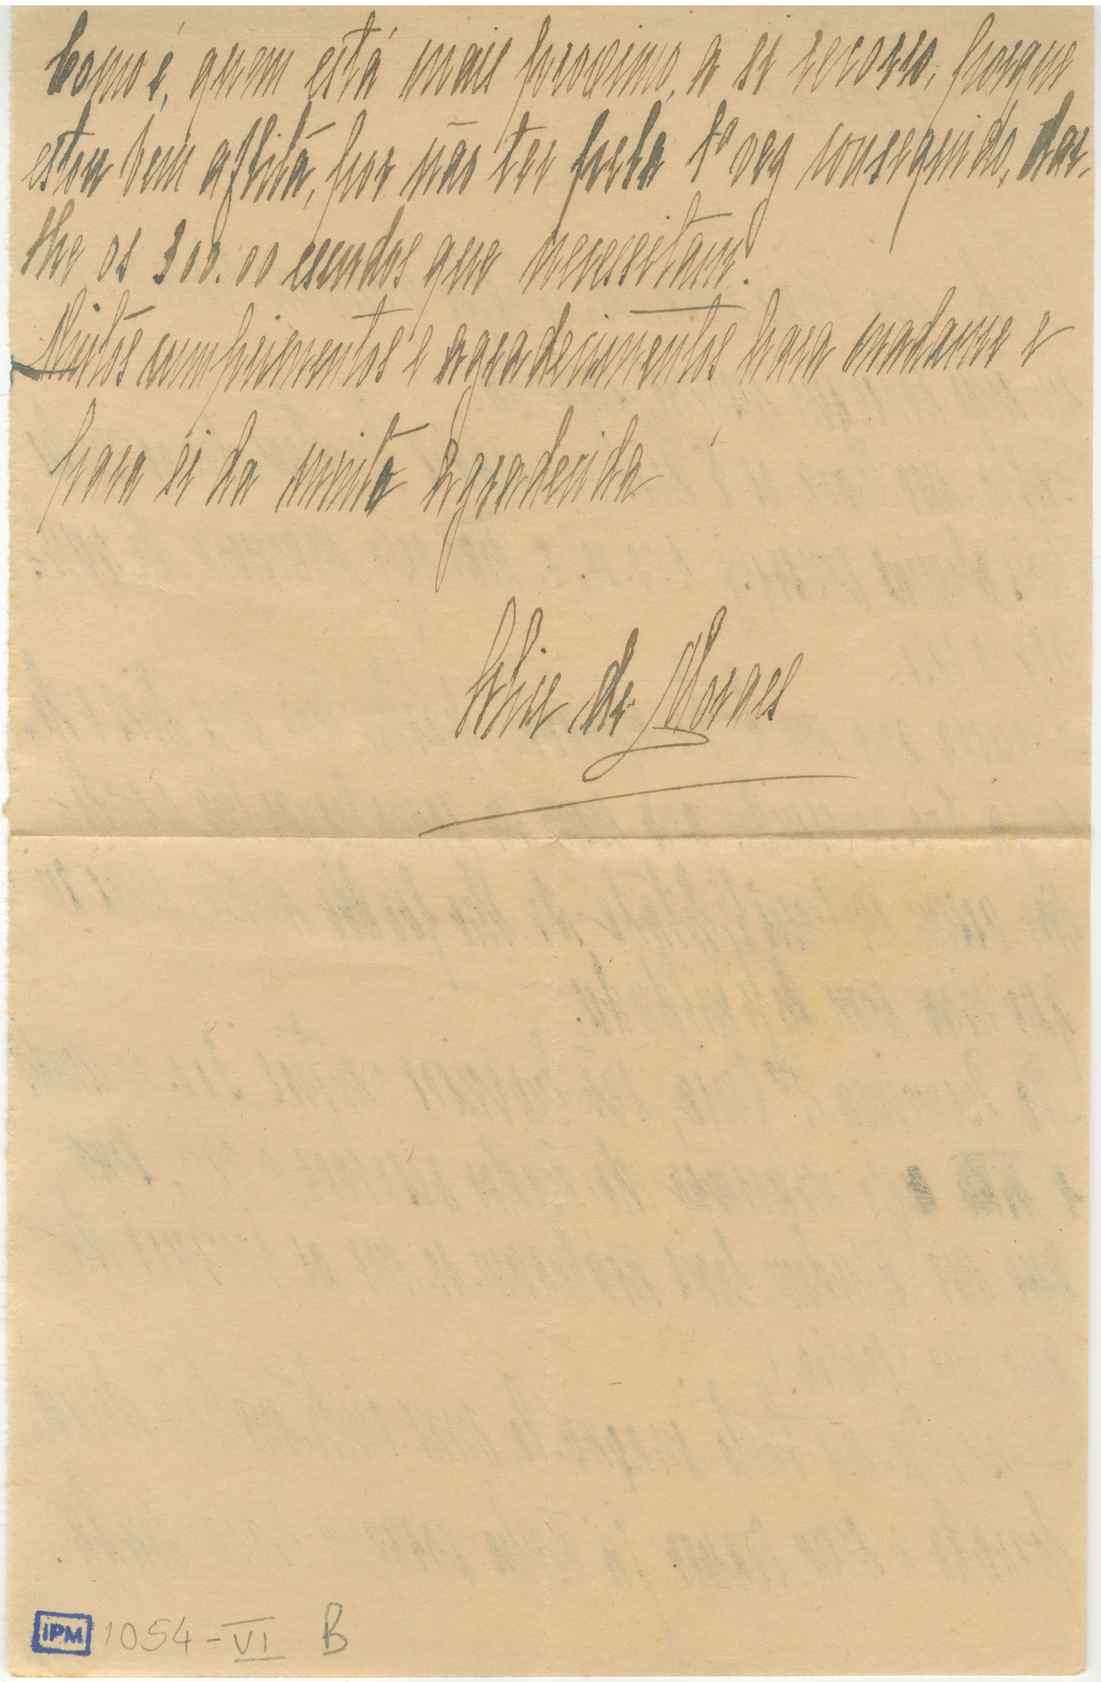 Como é, quem está mais proximo, a si recorro, porque
estou bem aflita, por não ter pela 1ª vez conseguido, dar-
lhe os 300.00 escudos que necessitam.
Muitos cumprimentos e agradecimentos para madame e
para si da muito agradecida
Alice de Moraes
IPM 1054-VI B